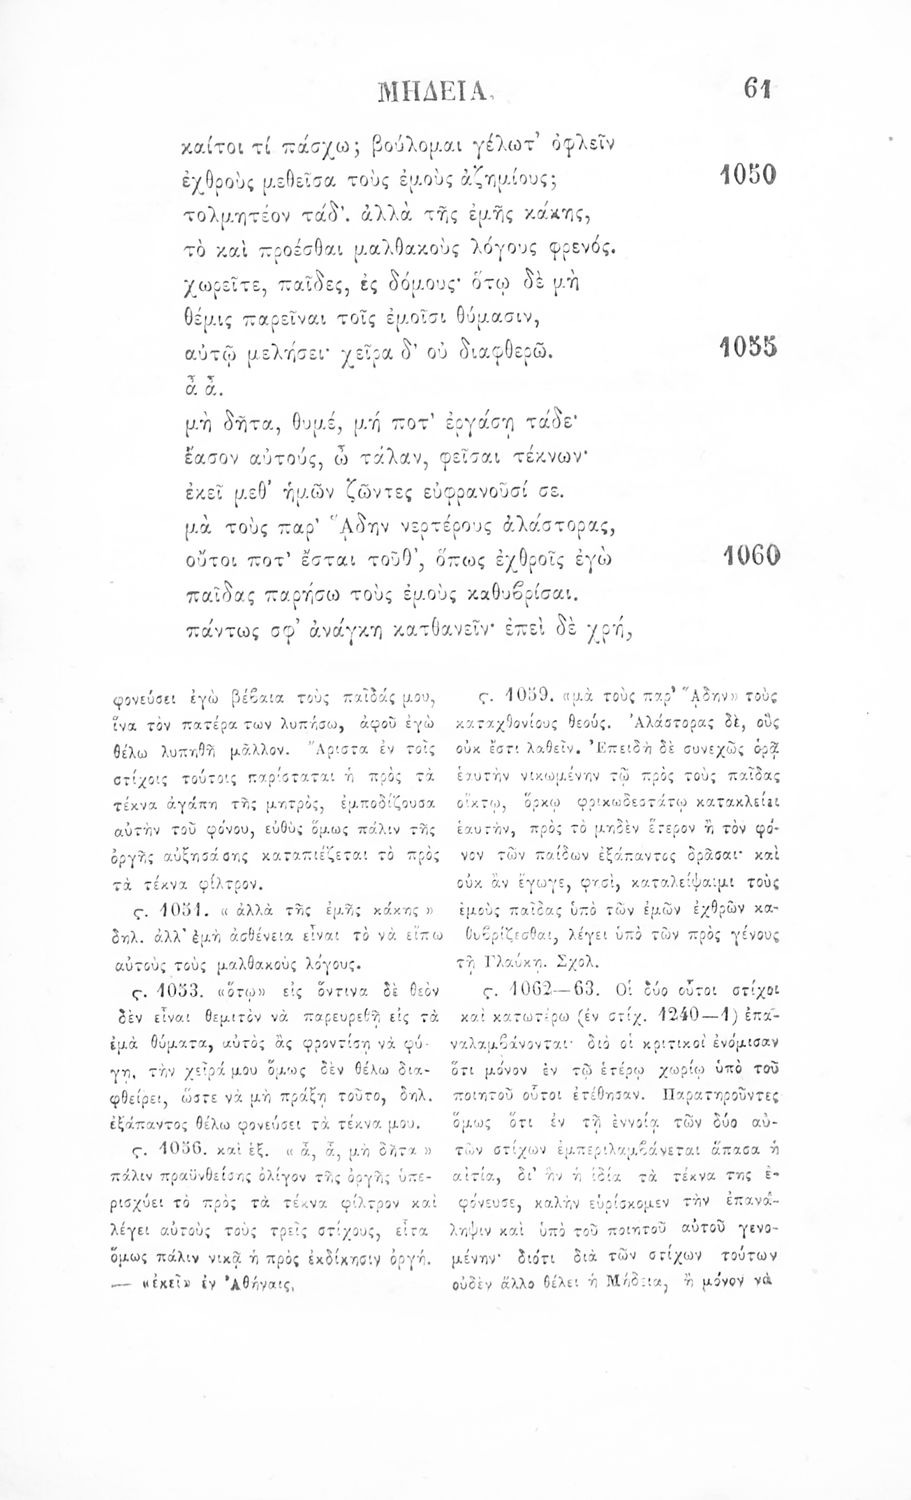 ΜΗΔΕΙΑ. 61
καίτοι τί πάσχω; βούλομαι γέλωτ’ ὀφλεῖν
ἐχθροὺς μεθεῖσα τοὺς ἐμοὺς ἀζημίους; 1050
τολμητέον τάδ’. ἀλλὰ τῆς ἐμῆς κάκης,
τὸ καὶ προέσθαι μαλθακοὺς λόγους φρενός.
χωρεῖτε, παῖδες, ἐς δόμους· ὅτῳ δὲ μὴ
θέμις παρεῖναι τοῖς ἐμοῖσι θύμασιν,
αὐτῷ μελήσει· χεῖρα δ’ οὐ διαφθερῶ. 1055
ἆ ἆ.
μὴ δῆτα, θυμέ, μή ποτ’ ἐργάσῃ τάδε·
ἔασον αὐτούς, ὦ τάλαν, φεῖσαι τέκνων·
ἐκεῖ μεθ’ ἡμῶν ζῶντες εὐφρανοῦσί σε.
μὰ τοὺς παρ’ Ἅδην νερτέρους ἀλάστορας,
οὔτοι ποτ’ ἔσται τοῦθ’, ὅπως ἐχθροῖς ἐγὼ 1060
παῖδας παρήσω τοὺς ἐμοὺς καθυβρίσαι.
πάντως σφ’ ἀνάγκη κατθανεῖν· ἐπεὶ δὲ χρή,
φονεύσει ἐγὼ βέβαια τοὺς παῖδάς μου,
ἵνα τὸν πατέρα των λυπήσω, ἀφοῦ ἐγὼ
θέλω λυπηθῆ μᾶλλον. Ἄριστα ἐν τοῖς
στίχοις τούτοις παρίσταται ἡ πρὸς τὰ
τέκνα ἀγάπη τῆς μητρὸς, ἐμποδίζουσα
αὐτὴν τοῦ φόνου, εὐθὺς ὅμως πάλιν τῆς
ὀργῆς αὐξησάσης καταπιέζεται τὸ πρὸς
τὰ τέκνα φίλτρον.
ς. 1051. «ἀλλὰ τῆς ἐμῆς κάκης»
δηλ. ἀλλ’ ἐμὴ ἀσθένεια εἶναι τὸ νὰ εἴπω
αὐτοὺς τοὺς μαλθακοὺς λόγους.
ς. 1053. «ὅτῳ» εἰς ὅντινα δὲ θεὸν
δὲν εἶναι θεμιτὸν νὰ παρευρεθῇ εἰς τὰ
ἐμὰ θύματα, αὐτὸς ἂς φροντίσῃ νὰ φύ-
γῃ, τὴν χεῖρά μου ὅμως δὲν θέλω δια-
φθείρει, ὥστε νὰ μὴ πράξῃ τοῦτο, δηλ.
ἐξάπαντος θέλω φονεύσει τὰ τέκνα μου.
ς. 1056. καὶ ἑξ. «ἆ, ἆ, μὴ δῆτα»
πάλιν πραϋνθείσης ὀλίγον τῆς ὀργῆς ὑπε-
ρισχύει τὸ πρὸς τὰ τέκνα φίλτρον καὶ
λέγει αὐτοὺς τοὺς τρεῖς στίχους, εἶτα
ὅμως πάλιν νικᾷ ἡ πρὸς ἐκδίκησιν ὀργή.
— «ἐκεῖ» ἐν Ἀθήναις,
ς. 1059. «μὰ τοὺς παρ’ Ἅδην» τοὺς
καταχθονίους θεούς. Ἀλάστορας δὲ, οὓς
οὐκ ἔστι λαθεῖν. Ἐπειδὴ δὲ συνεχῶς ὁρᾷ
ἑαυτὴν νικωμένην τῷ πρὸς τοὺς παῖδας
οἴκτῳ, ὅρκῳ φρικωδεστάτῳ κατακλείει
ἑαυτὴν, πρὸς τὸ μηδὲν ἕτερον ἢ τὸν φό-
νον τῶν παίδων ἐξάπαντος δρᾶσαι· καὶ
οὐκ ἂν ἔγωγε, φησὶ, καταλείψαιμι τοὺς
ἐμοὺς παῖδας ὑπὸ τῶν ἐμῶν ἐχθρῶν κα-
θυβρίζεσθαι, λέγει ὑπὸ τῶν πρὸς γένους
τῇ Γλαύκῃ. Σχολ.
ς. 1062—63. Οἱ δύο οὗτοι στίχοι
καὶ κατωτέρω (ἐν στίχ. 1240—1) ἐπα-
ναλαμβάνονται· διὸ οἱ κριτικοὶ ἐνόμισαν
ὅτι μόνον ἐν τῷ ἑτέρῳ χωρίῳ ὑπὸ τοῦ
ποιητοῦ οὗτοι ἐτέθησαν. Παρατηροῦντες
ὅμως ὅτι ἐν τῇ ἐννοίᾳ τῶν δύο αὐ-
τῶν στίχων ἐμπεριλαμβάνεται ἅπασα ἡ
αἰτία, δι’ ἣν ἡ ἰδία τὰ τέκνα της ἐ-
φόνευσε, καλὴν εὑρίσκομεν τὴν ἐπανά-
ληψιν καὶ ὑπὸ τοῦ ποιητοῦ αὐτοῦ γενο-
μένην· διότι διὰ τῶν στίχων τούτων
οὐδὲν ἄλλο θέλει ἡ Μήδεια, ἢ μόνον νὰ